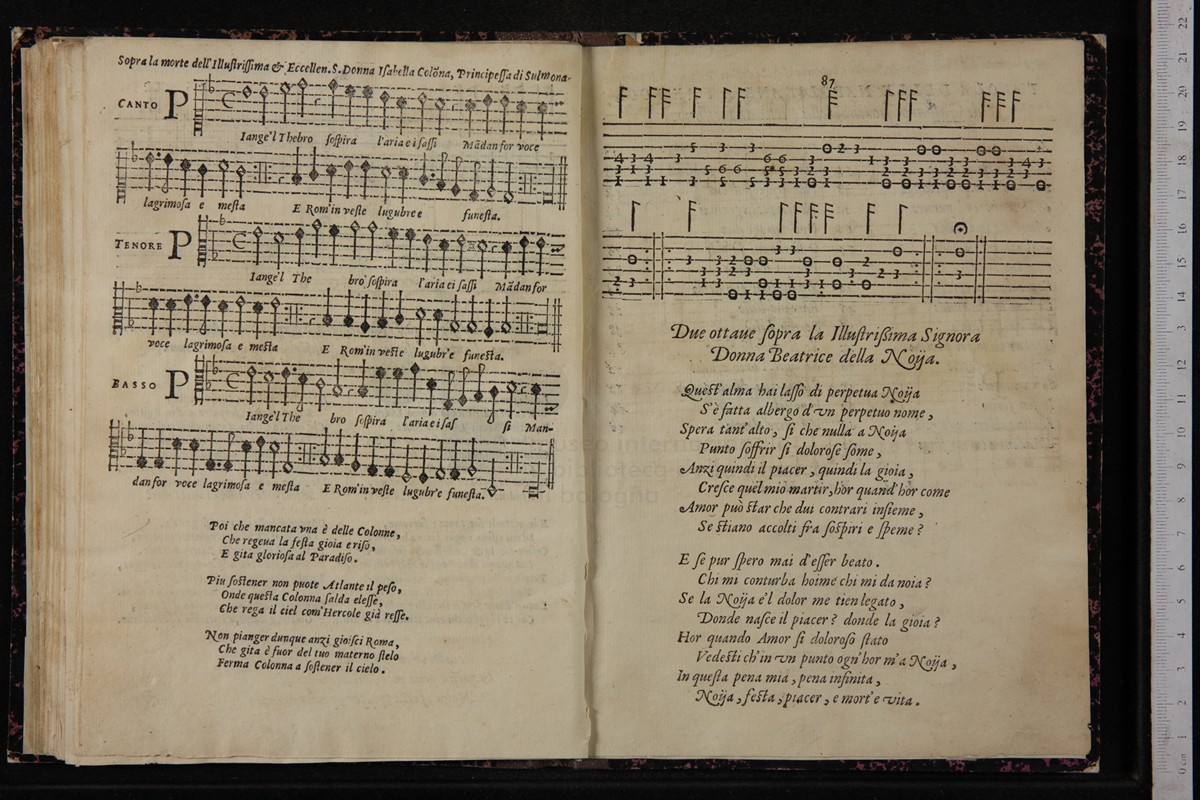 Sopra la morte dell'Illustrissima & Eccellen. S. Donna Isabella Colōna, Principessa di Sulmona.
CANTO
P Iange'l Thebro sospira l'aria e i sassi Mādan for voce
lagrimosa e mesta E Rom'in veste lugubre e funesta.
TENORE
P Iange'l The bro sospira l'aria ei sassi Mādan for
voce lagrimosa e mesta E Rom'in veste lugubr'e funesta.
BASSO
P Iange'l The bro sospira l'aria e i sas si Man-
dan for voce lagrimosa e mesta E Rom'in veste lugubr'e funesta.
Poi che mancata vna è delle Colonne,
Che regeua la festa gioia e riso,
E gita gloriosa al Paradiso.
Piu sostener non puote Atlante il peso,
Onde questa Colonna salda elesse,
Che rega il ciel com'Hercole già resse.
Non pianger dunque anzi gioisci Roma,
Che gita è fuor del tuo materno stelo
Ferma Colonna a sostener il cielo.
87
Due ottaue sopra la Illustrissima Signora
Donna Beatrice della Noija.
Quest'alma hai lasso di perpetua Noija
S'è fatta albergo d'vn perpetuo nome,
Spera tant'alto, si che nulla a Noija
Punto soffrir si dolorose some,
Anzi quindi il piacer, quindi la gioia,
Cresce quel mio martir, hor quand'hor come
Amor può star che dui contrari insieme,
Se stiano accolti fra sospiri e speme?
E se pur spero mai d'esser beato.
Chi mi conturba hoime chi mi da noia?
Se la Noija e'l dolor me tien legato,
Donde nasce il piacer? donde la gioia?
Hor quando Amor si doloroso stato
Vedesti ch'in vn punto ogn'hor m'a Noija,
In questa pena mia, pena infinita,
Noija, festa, piacer, e mort'e vita.
museo
biblioteca
bologna